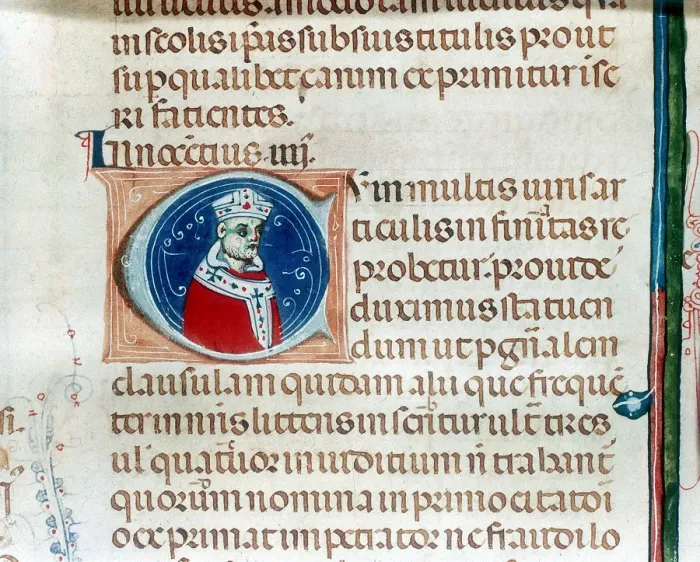 in scolis ipsis sub suis titulis prout
sup qualibet earum exprimitur ise
ri facientes.
Innocētius .iiij.
CVm in multis iuris ar
ticulis infinitas re
probetur. prouide
duximus statuen
dum ut p gn̄alem
clausulam quidam alii que frequē
ter in nr̄is litteris inseritur ult̄ tres
ul' quatuor in iuditium n̄ trahant̄
quorum nomina in primo citatori
o exprimat impetrator ne fraudi lo